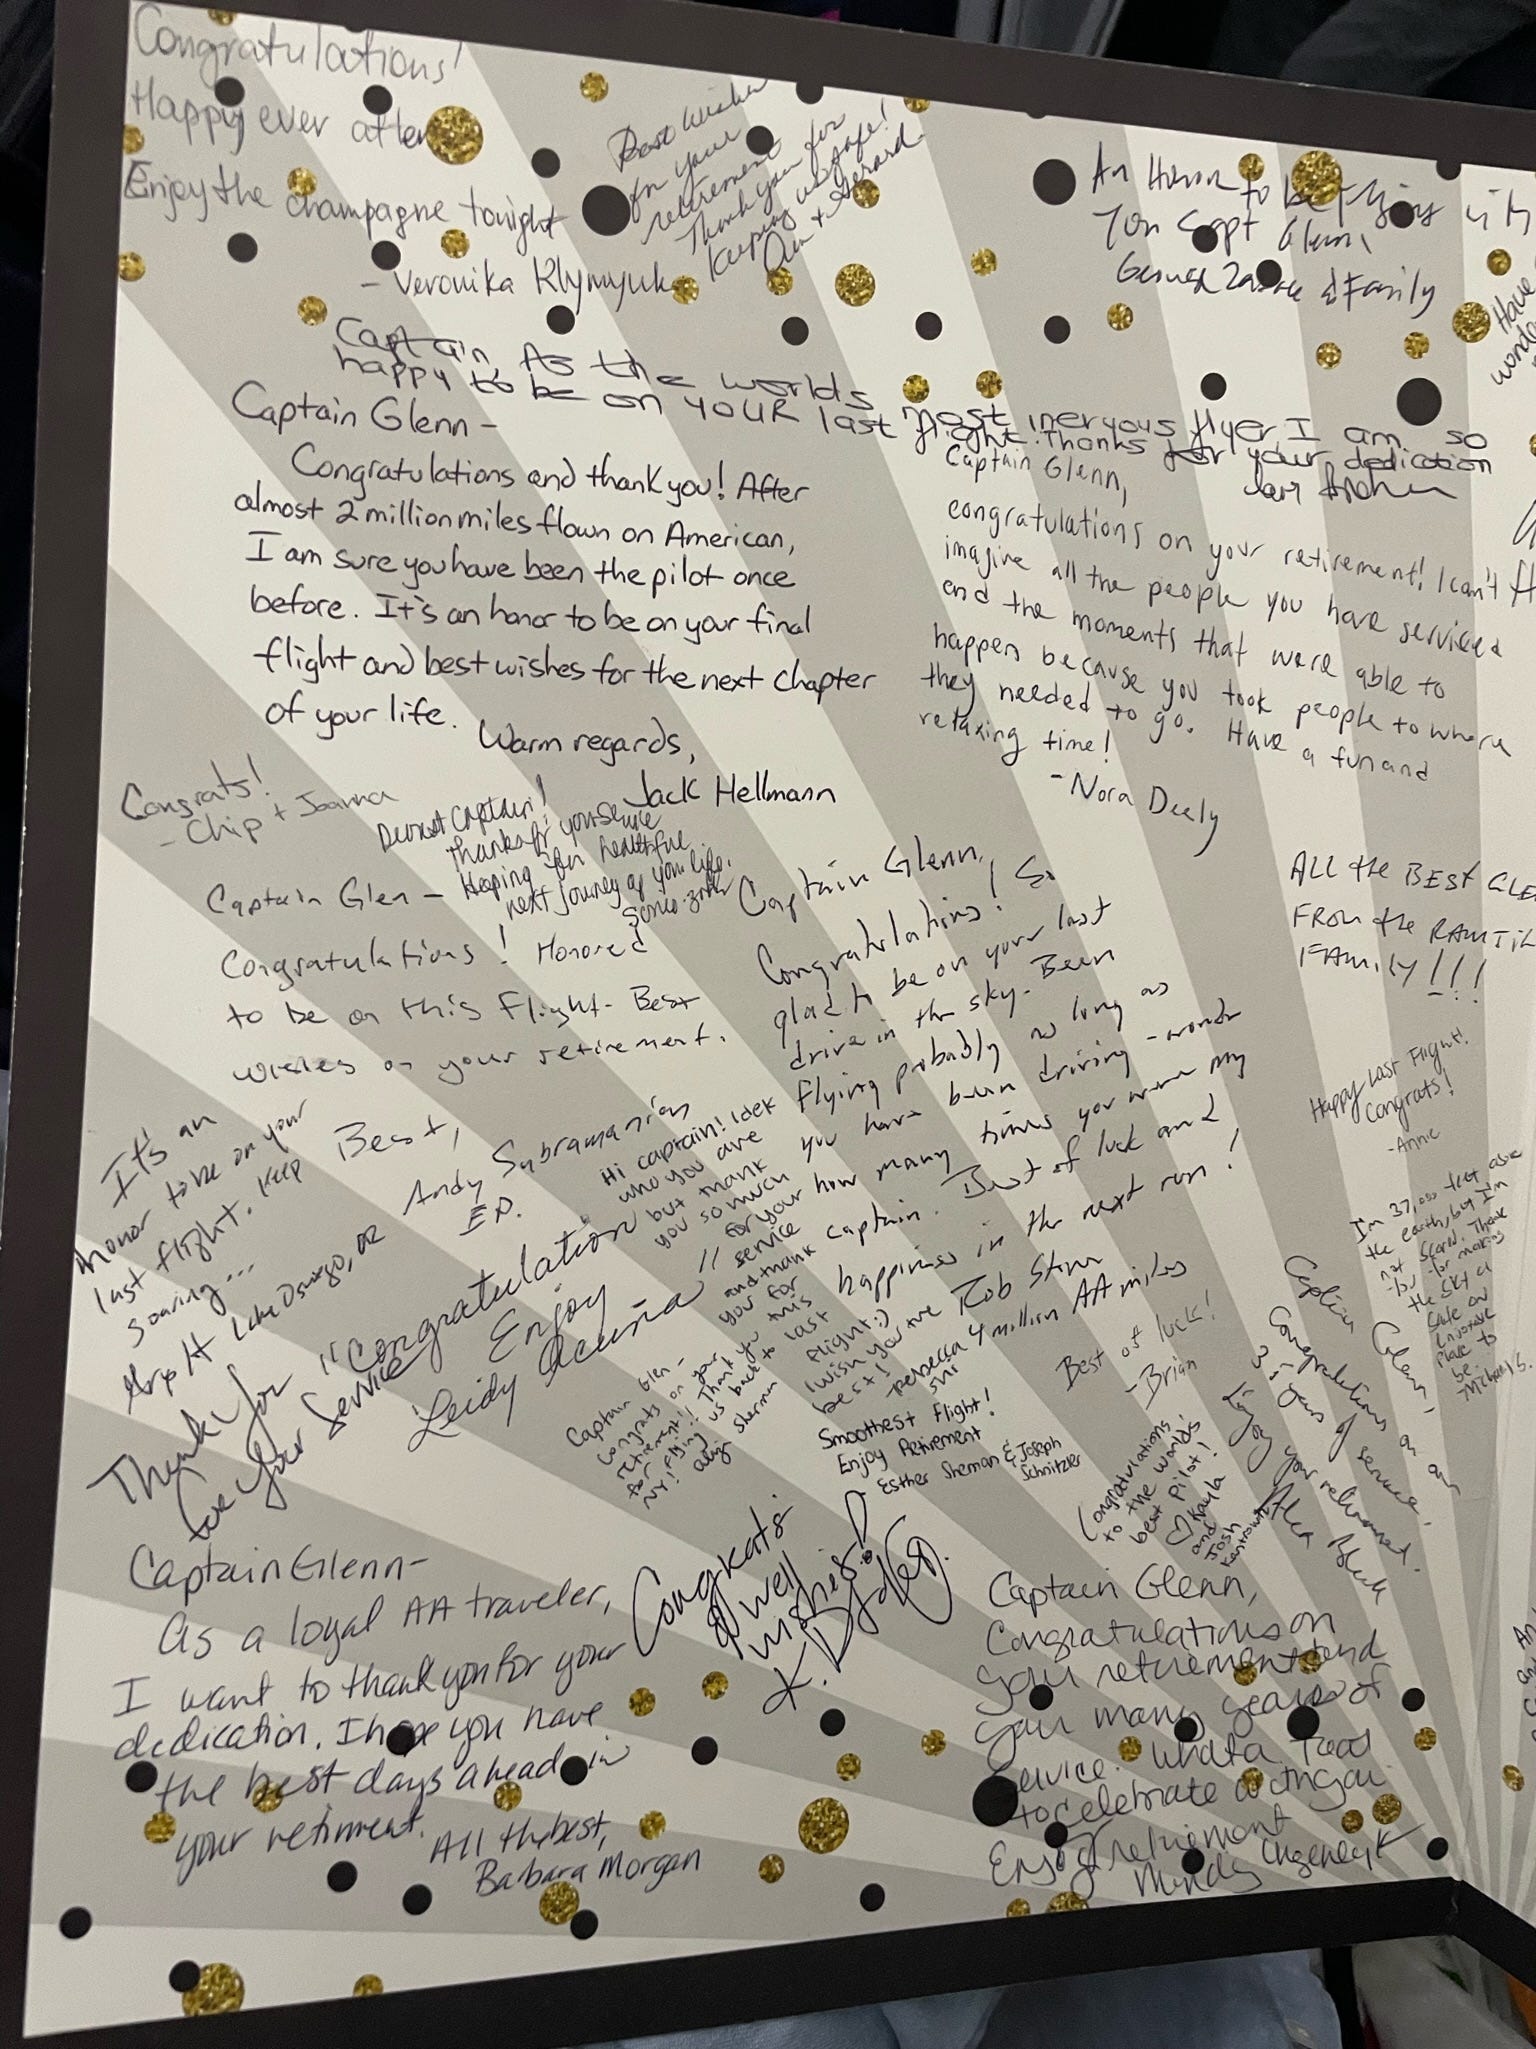 Congratulations!
Happy ever after
Enjoy the champagne tonight
- Veronika Klymyuk
Best Wishes
on your
retirement
Thank you for
keeping us safe!
+ Gerard
An Honor to be flying
You Capt Glenn,
& Family
Have
Captain, As the worlds most nervous flyer I am so
happy to be on YOUR last flight. Thanks for your dedication
Captain Glenn -
Congratulations and thank you! After
almost 2 million miles flown on American,
I am sure you have been the pilot once
before. It's an honor to be on your final
flight and best wishes for the next chapter
of your life.
Warm regards,
Jack Hellmann
Captain Glenn,
congratulations on your retirement! I can't
imagine all the people you have serviced
and the moments that were able to
happen because you took people to where
they needed to go. Have a fun and
relaxing time!
- Nora Deely
Congrats!
- Chip + Joanna
Dearest Captain!
Thanks for your service
Hoping for healthful
next journey of your life.
Captain Glen -
Congratulations! Honored
to be on this flight - Best
wishes on your retirement.
Best,
Andy Subramanian
Captain Glenn,
Congratulations! So
glad to be on your last
drive in the sky. Been
flying probably as long as
you have been driving - wonder
how many times you were my
captain. Best of luck and
happiness in the next run!
Rob Stern
4 million AA miles
ALL the BEST
FROM the
FAMILY!!!
Happy Last Flight!
Congrats!
- Annie
It's an
honor to be on your
last flight. Keep
soaring...
Lake Oswego, OR
Hi captain! Idek
who you are
but thank
you so much
for your
service
and thank
you for
this
last
flight :)
I wish you the
best!
- Rebecca
Shi
"Congratulation"
Enjoy
Leidy
Thank You for
Your Service
Captain Glen -
Congrats on your
retirement!! Thank you
for flying us back to
NY!
Sherman
Smoothest Flight!
Enjoy Retirement
Esther Sherman & Joseph
Schnitzler
Best of luck!
- Brian
I'm 37,000 feet above
the earth, but I'm
not scared. Thank
you for making
the sky a
safe
place to
be.
Captain Glenn,
Congratulations on
35 years of service.
Enjoy your retirement.
Congratulations
to the world's
best pilot!
♡ Kayla
and
Josh
Captain Glenn -
As a loyal AA traveler,
I want to thank you for your
dedication. I hope you have
the best days ahead in
your retirment.
All the best,
Barbara Morgan
Congrats
& well
wishes!
Captain Glenn,
Congratulations on
your retirement and
your many years of
service. What a treat
to celebrate with you.
Enjoy retirement
Mindy